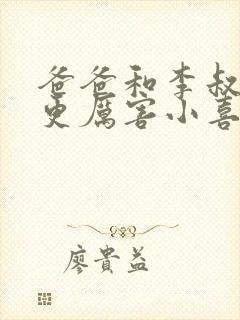 爸爸和李叔
更厲害小喜
廖貴益